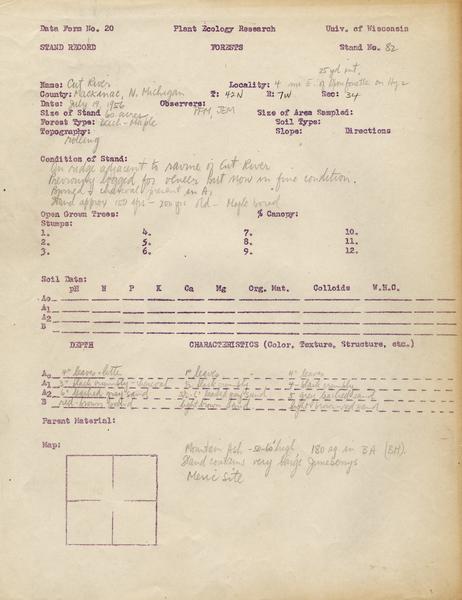 Data Form No. 20 Plant Ecology Research Univ. of Wisconsin
STAND RECORD FORESTS Stand No. 82
25 yd int.
Name: Cut River Locality: 4 mi E. of on Hy 2
County: Mackinac, N. Michigan T: 42N R: 7W Sec: 34
Date: July 19, 1956 Observers: PFM, JEM
Size of Stand 60 acres Size of Area Sampled:
Forest Type: Beech-Maple Soil Type:
Topography: Slope: Directions
rolling
Condition of Stand:
On ridge adjacent to ravine of Cut River
Previously logged for veneer but now in fine condition.
Burned - charcoal present in A1
Stand approx 150 yrs - 200 yrs old - Maple bored
Open Grown Trees: % Canopy:
Stumps:
1. 4. 7. 10.
2. 5. 8. 11.
3. 6. 9. 12.
Soil Data:
pH N P K Ca Mg Org. Mat. Colloids W.H.C.
Ao
A1
A2
B
DEPTH CHARACTERISTICS (Color, Texture, Structure, etc.)
Ao 4" leaves - litter 1" leaves 4" leaves
A1 3" black crumbly - charcoal black crumbly 4" black crumbly
A2 6" leached gray sand leached gray sand 5" gray leached sand
B red-brown sand light brown sand light brown-red sand
Parent Material:
Map:
Mountain Ash - high 180 sq in BA (BH).
Stand contains very large Juneberrys
Mesic Site